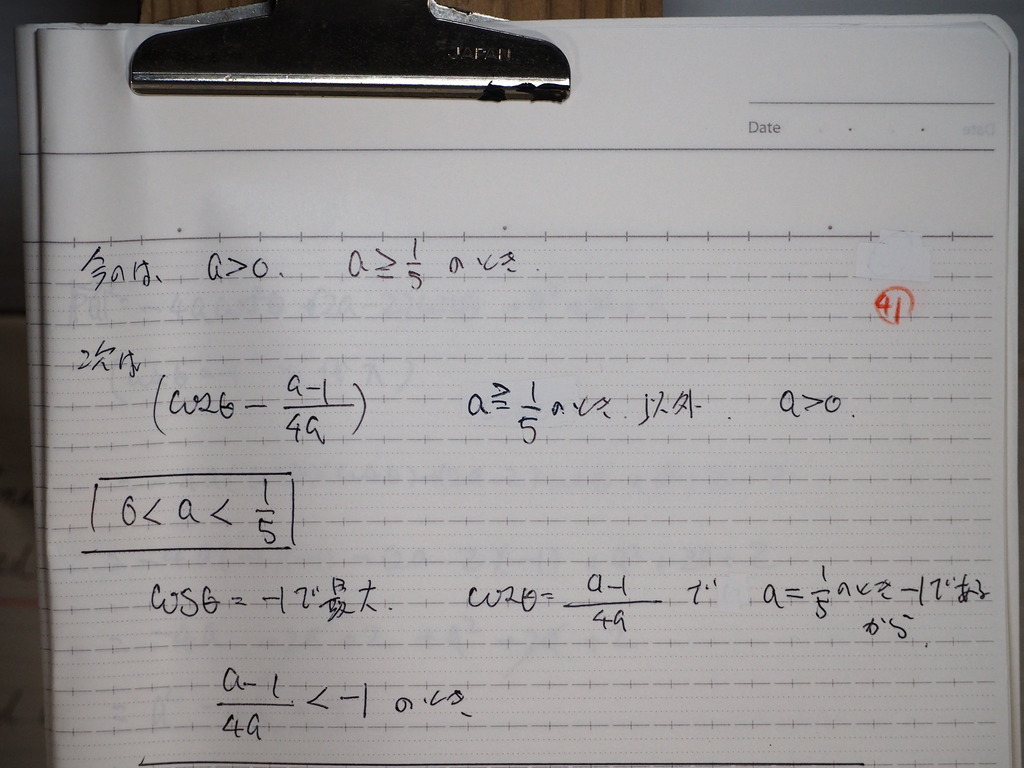 JAPAN
Date
今のは、 a>0. a≧1/5 のとき.
41
次は
(cosθ - (a-1)/4a) a≧1/5 のとき 以外. a>0.
0<a<1/5
cosθ=-1で最大. cosθ=(a-1)/4a で a=1/5のとき-1である
から
(a-1)/4a < -1 のとき